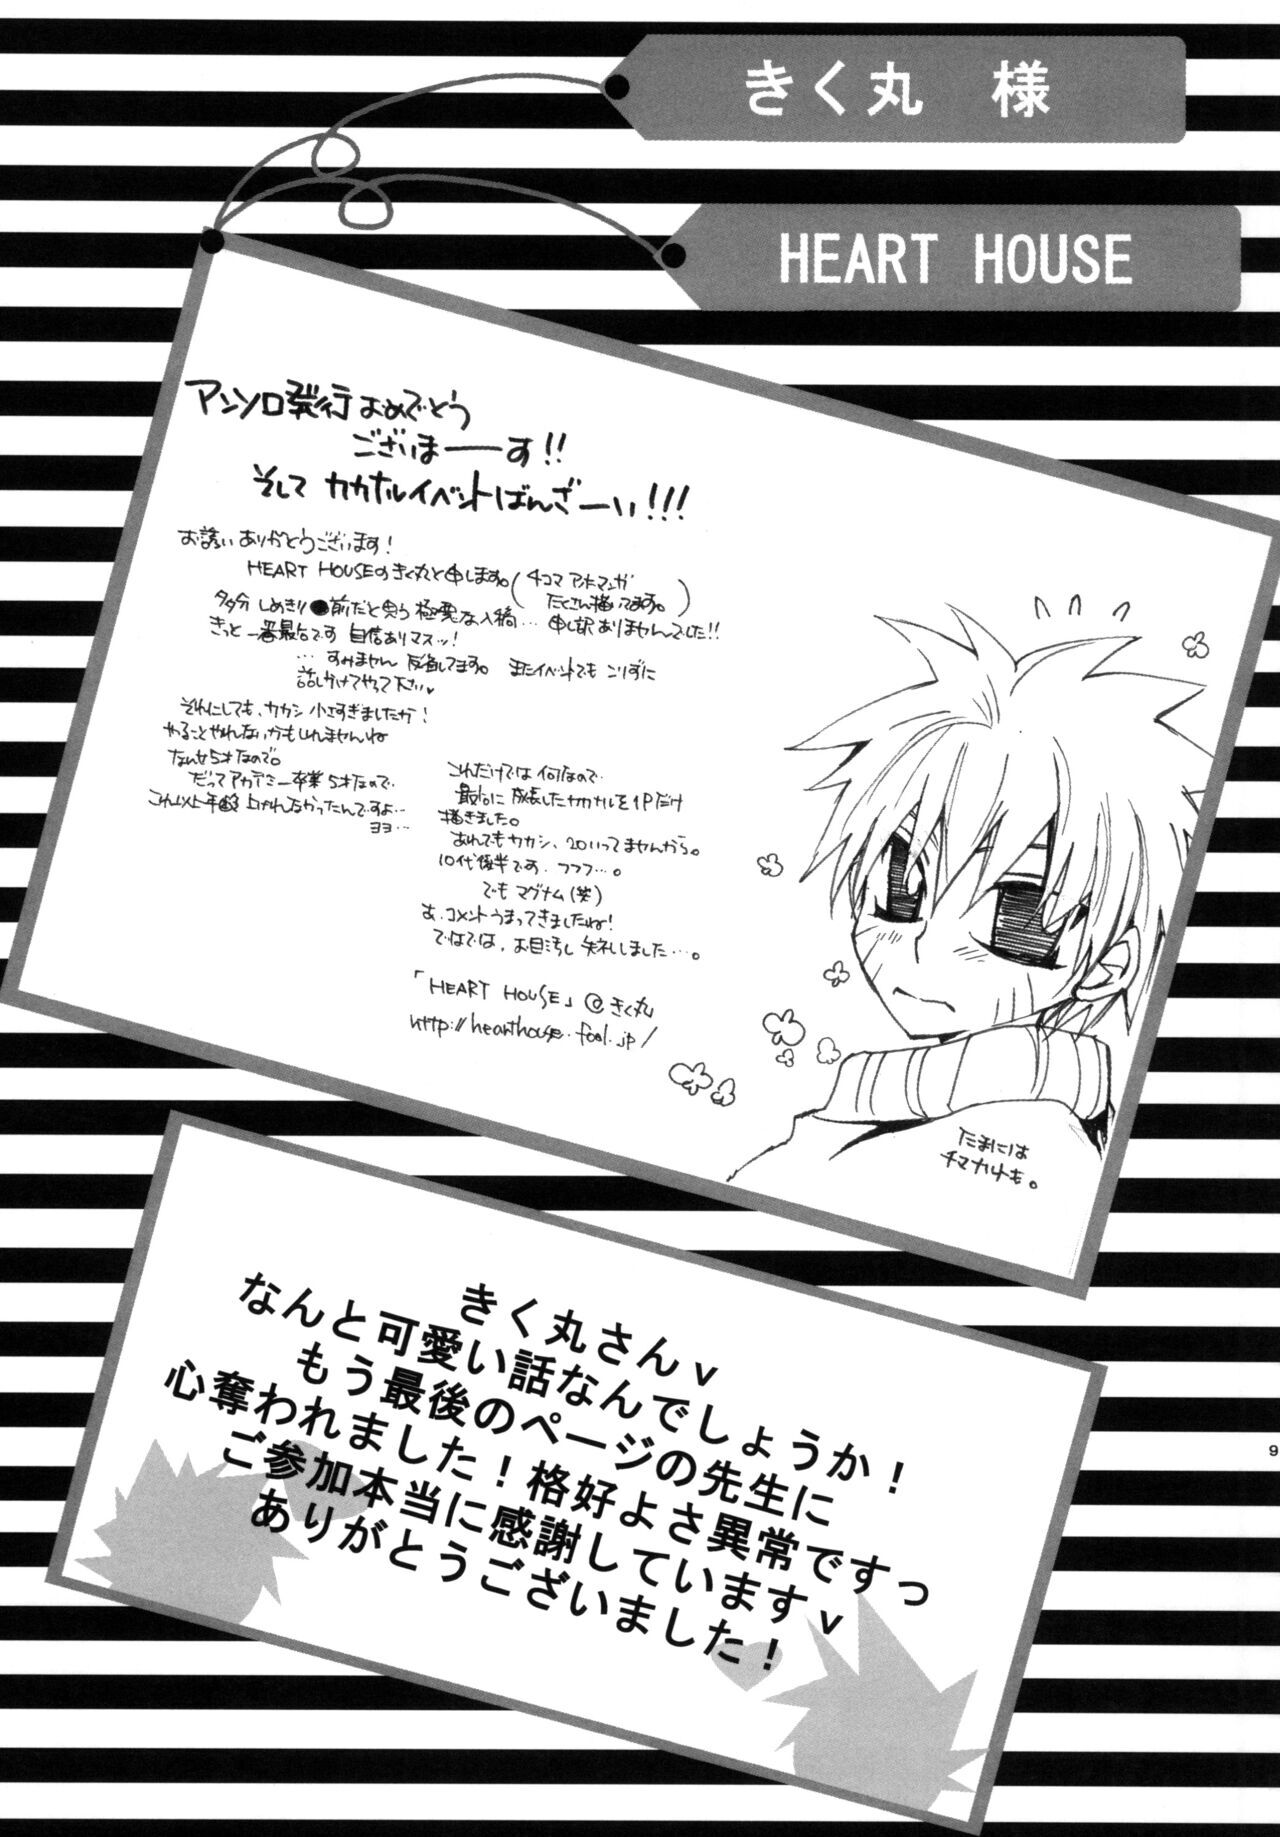 きく丸 様
HEART HOUSE
アンソロ発行おめでとう
ございまーーす!!
そして カカナルイベントばんざーい!!!
お誘いありがとうございます!
HEART HOUSEのきく丸と申します。(4コマ アンド マンガ
たくさん描いてます。)
多分 しめきり●前だと思う 極悪な入稿… 申し訳ありませんでした!!
きっと 一番最后です 自信ありマスッ!
… すみません 反省してます。 またイベントでも こりずに
話しかけてやって下さい
それにしても、カカシ 小さすぎましたか!
やることやれないかもしれませんね
なんせ5才なので。
だってアカデミー卒業5才なので…
これ以上年 上がれなかったんですよ…
ヨヨ…
これだけでは 何なので、
最后に 成長したカカナルを1Pだけ
描きました。
あれでもカカシ、20いってませんから。
10代後半です、フフフ…。
でも マグナム(笑)
あ、コメントうまってきましたね!
ではでは、お目汚し 失礼しました…。
「HEART HOUSE」@きく丸
http://hearthouse.fool.jp/
たまには
チマカルトも。
きく丸さんv
なんと可愛い話なんでしょうか!
もう最後のページの先生に
心奪われました!格好よさ異常ですっ
ご参加本当に感謝していますv
ありがとうございました!
9